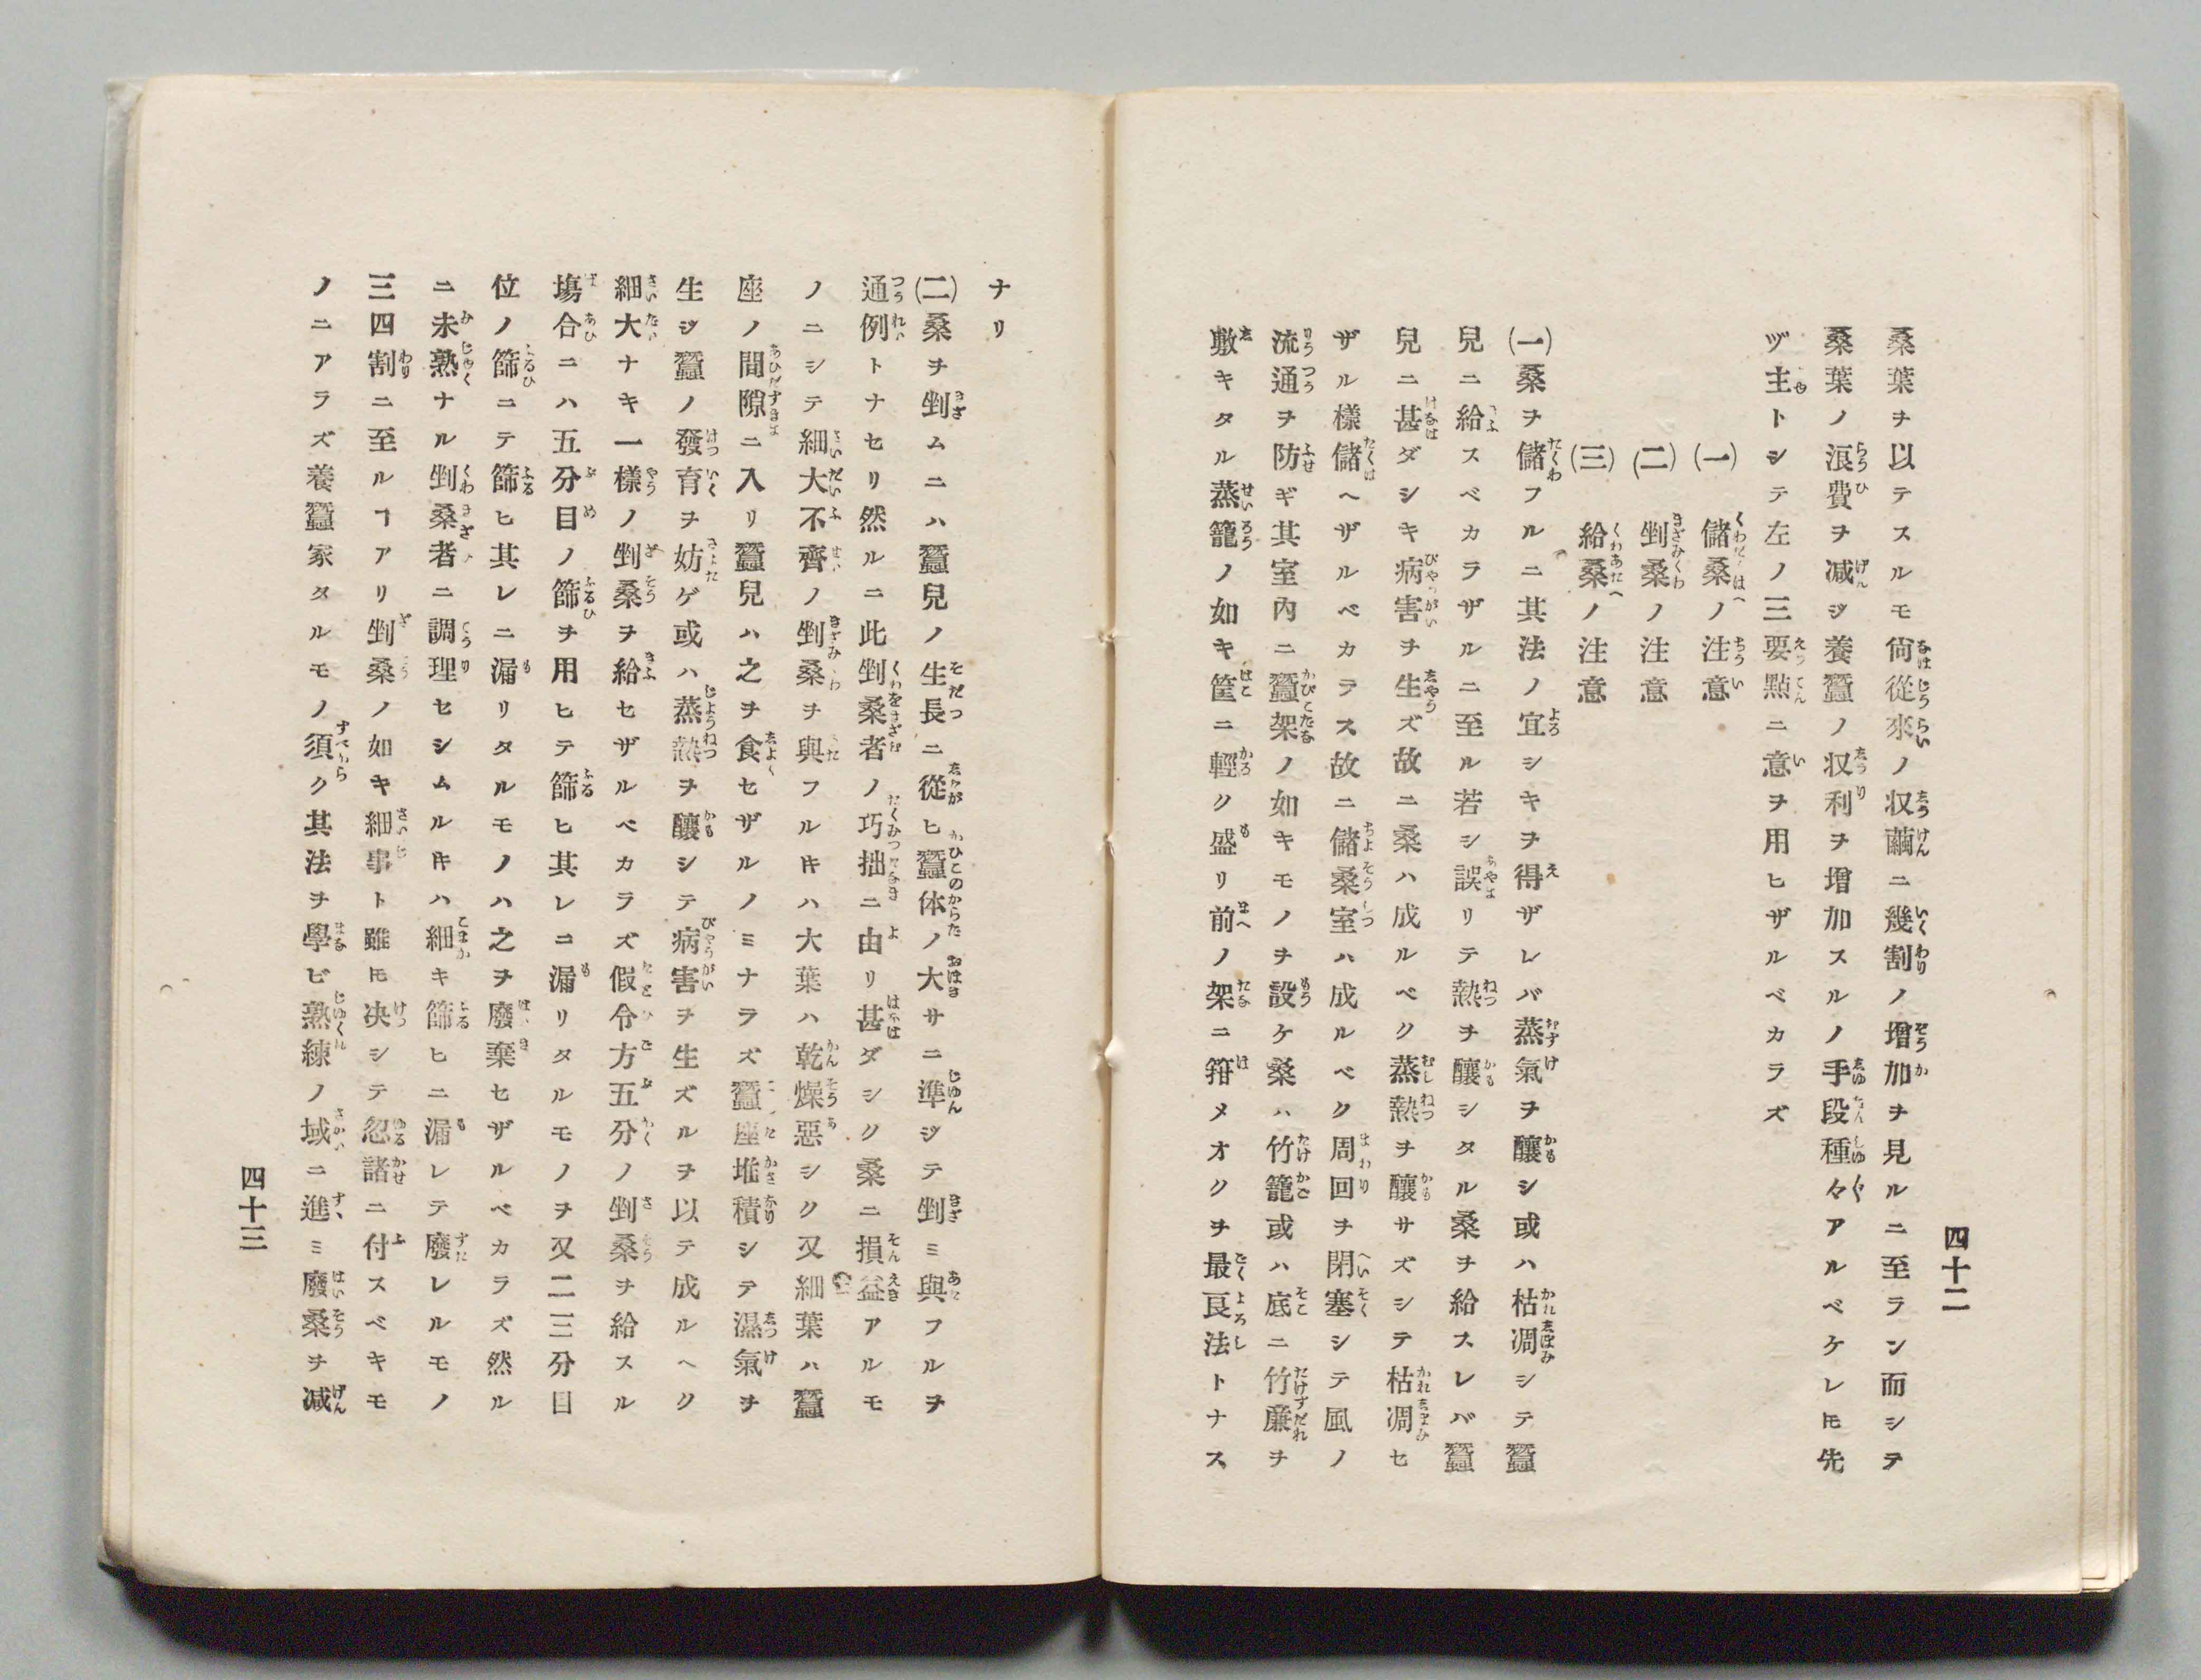 桑葉ヲ以テスルモ尙從來ノ収繭ニ幾割ノ增加ヲ見ルニ至ラン而シテ
桑葉ノ浪費ヲ減ジ養蠶ノ収利ヲ增加スルノ手段種々アルベケレ𪜈先
ヅ主トシテ左ノ三要點ニ意ヲ用ヒザルベカラズ
(一) 儲桑ノ注意
(二) 剉桑ノ注意
(三) 給桑ノ注意
(一)桑ヲ儲フルニ其法ノ宜シキヲ得ザレバ蒸氣ヲ釀シ或ハ枯凋シテ蠶
兒ニ給スベカラザルニ至ル若シ誤リテ熱ヲ釀シタル桑ヲ給スレバ蠶
兒ニ甚ダシキ病害ヲ生ズ故ニ桑ハ成ルベク蒸熱ヲ釀サズシテ枯凋セ
ザル樣儲ヘザルベカラス故ニ儲桑室ハ成ルベク周回ヲ閉塞シテ風ノ
流通ヲ防ギ其室內ニ蠶架ノ如キモノヲ設ケ桑ハ竹籠或ハ底ニ竹簾ヲ
敷キタル蒸籠ノ如キ筐ニ輕ク盛リ前ノ架ニ箝メオクヲ最良法トナス
四十二
ナリ
(二)桑ヲ剉ムニハ蠶兒ノ生長ニ從ヒ蠶体ノ大サニ準ジテ剉ミ與フルヲ
通例トナセリ然ルニ此剉桑者ノ巧拙ニ由リ甚ダシク桑ニ損益アルモ
ノニシテ細大不齊ノ剉桑ヲ與フルキハ大葉ハ乾燥惡シク又細葉ハ蠶
座ノ間隙ニ入リ蠶兒ハ之ヲ食セザルノミナラズ蠶座堆積シテ濕氣ヲ
生ジ蠶ノ發育ヲ妨ゲ或ハ蒸熱ヲ釀シテ病害ヲ生ズルヲ以テ成ルヘク
細大ナキ一樣ノ剉桑ヲ給セザルベカラズ假令方五分ノ剉桑ヲ給スル
塲合ニハ五分目ノ篩ヲ用ヒテ篩ヒ其レニ漏リタルモノヲ又二三分目
位ノ篩ニテ篩ヒ其レニ漏リタルモノハ之ヲ廢棄セザルベカラズ然ル
ニ未熟ナル剉桑者ニ調理セシムルキハ細キ篩ヒニ漏レテ廢レルモノ
三四割ニ至ルヿアリ剉桑ノ如キ細事ト雖𪜈决シテ忽諸ニ付スベキモ
ノニアラズ養蠶家タルモノ須ク其法ヲ學ビ熟練ノ域ニ進ミ廢桑ヲ减
四十三